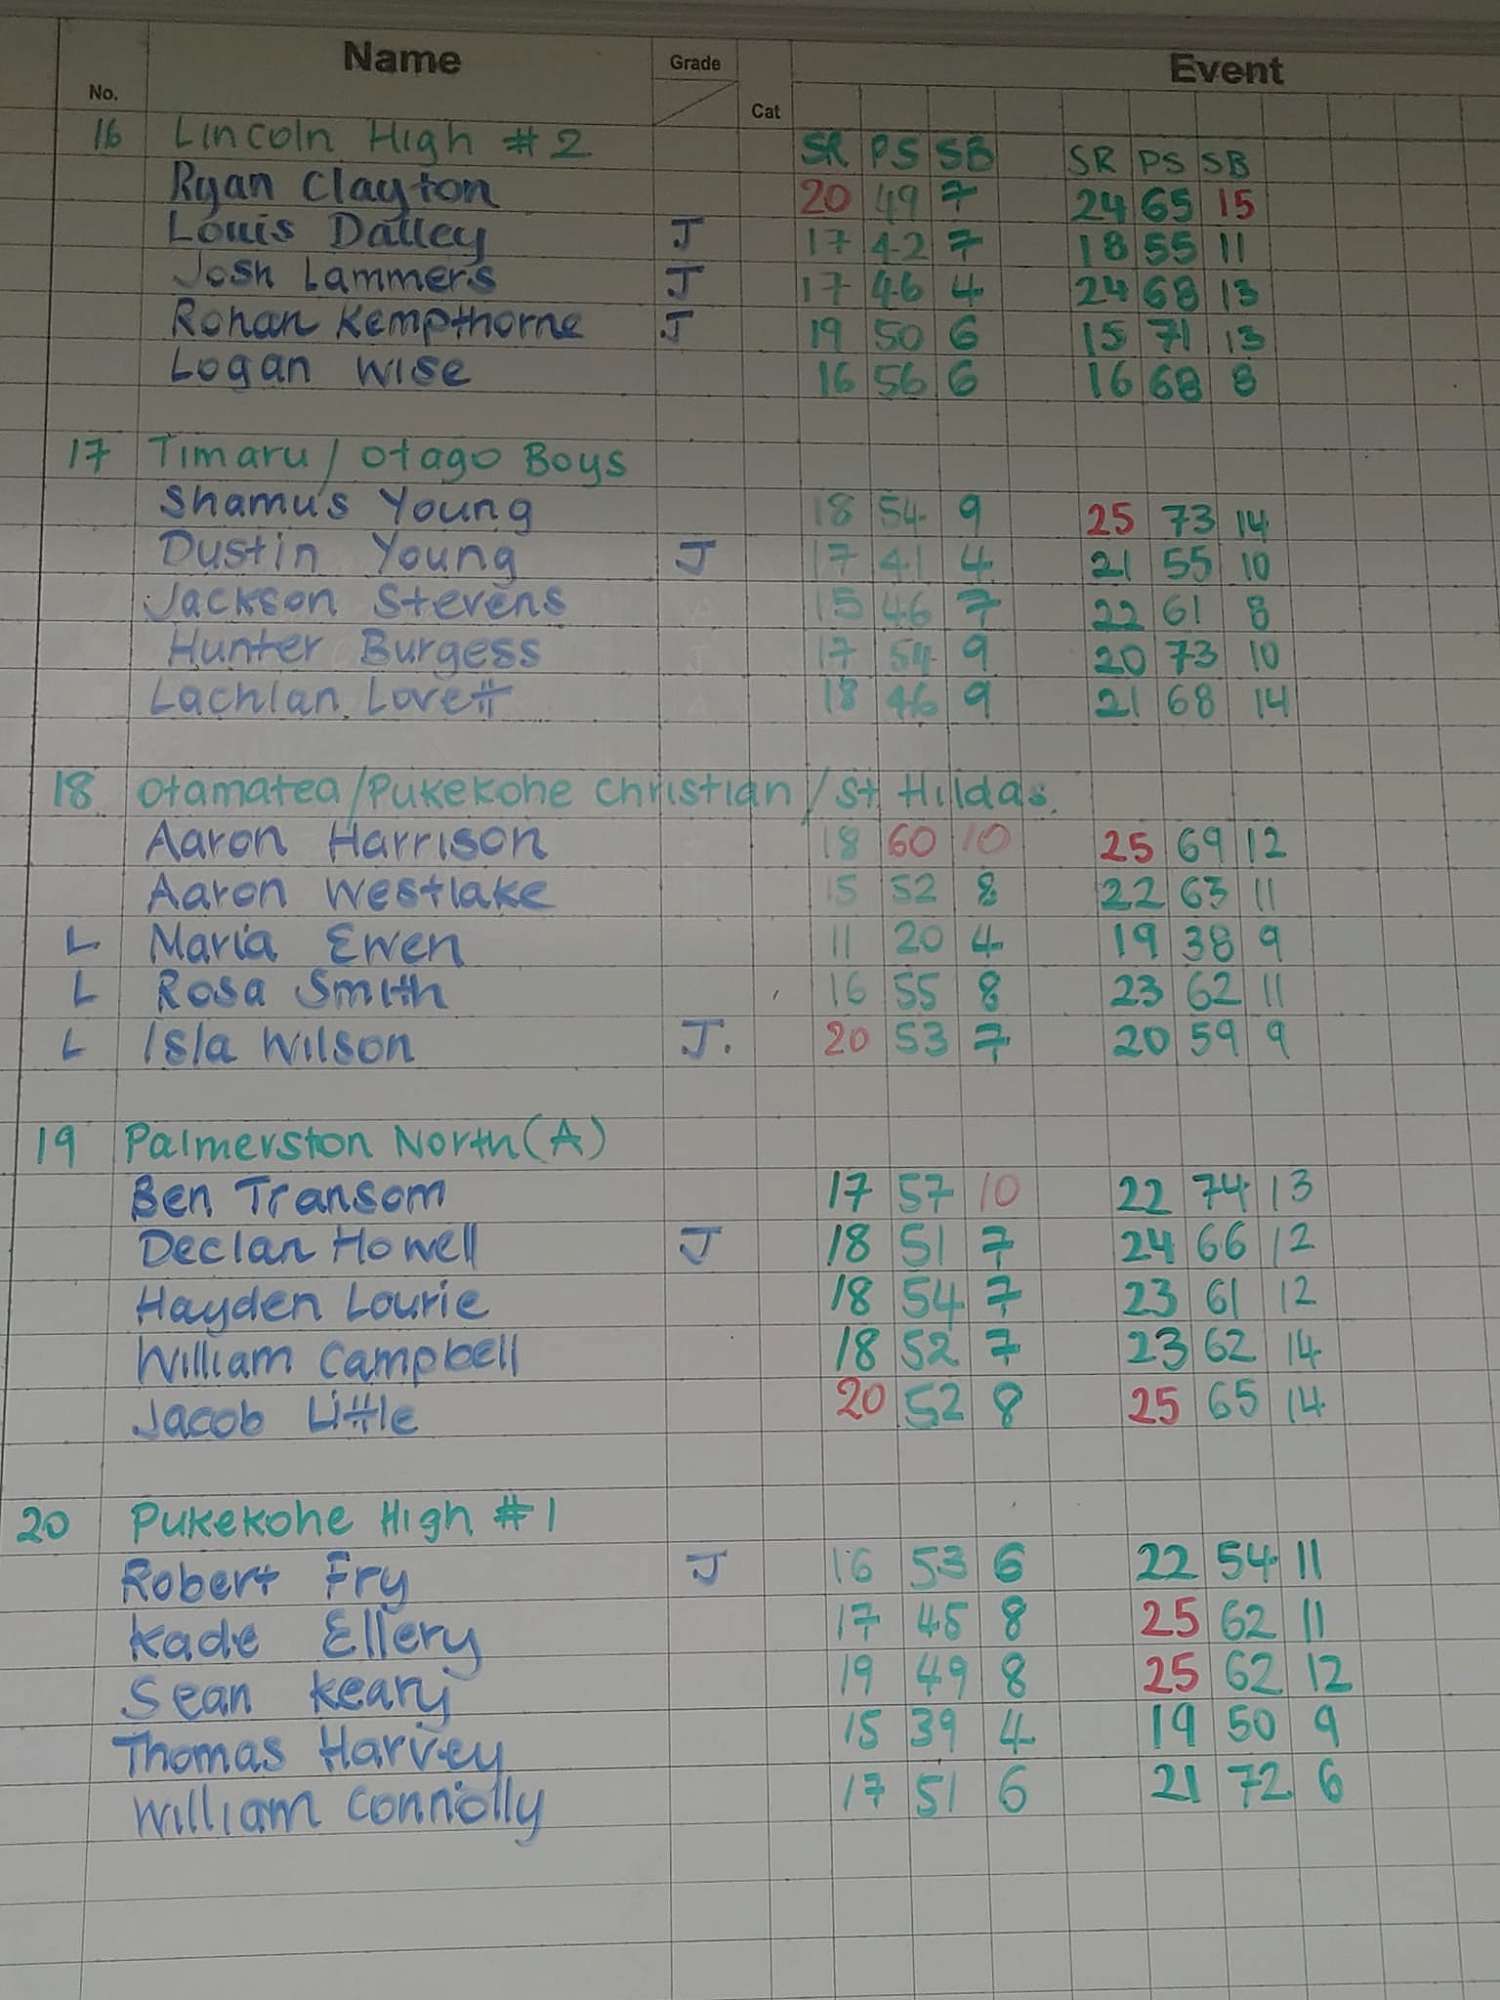 No. Name Grade Cat Event
16 Lincoln High #2 SR PS SB SR PS SB
Ryan Clayton 20 49 7 24 65 15
Louis Dalley J 17 42 7 18 55 11
Josh Lammers J 17 46 4 24 68 13
Ronan Kempthorne J 19 50 6 15 71 13
Logan Wise 16 56 6 16 68 8
17 Timaru / Otago Boys
Shamus Young 18 54 9 25 73 14
Dustin Young J 17 41 4 21 55 10
Jackson Stevens 15 46 7 22 61 8
Hunter Burgess 17 54 9 20 73 10
Lachlan Lovett 18 46 9 21 68 14
18 Otamatea/Pukekohe Christian / St Hildas.
Aaron Harrison 18 60 10 25 69 12
Aaron Westlake 15 52 8 22 63 11
L Maria Ewen 11 20 4 19 38 9
L Rosa Smith 16 55 8 23 62 11
L Isla Wilson J. 20 53 7 20 59 9
19 Palmerston North (A)
Ben Transom 17 57 10 22 74 13
Declan Howell J 18 51 7 24 66 12
Hayden Lourie 18 54 7 23 61 12
William Campbell 18 52 7 23 62 14
Jacob Little 20 52 8 25 65 14
20 Pukekohe High #1
Robert Fry J 16 53 6 22 54 11
Kade Ellery 17 45 8 25 62 11
Sean Keary 19 49 8 25 62 12
Thomas Harvey 15 39 4 19 50 9
William Connolly 17 51 6 21 72 6